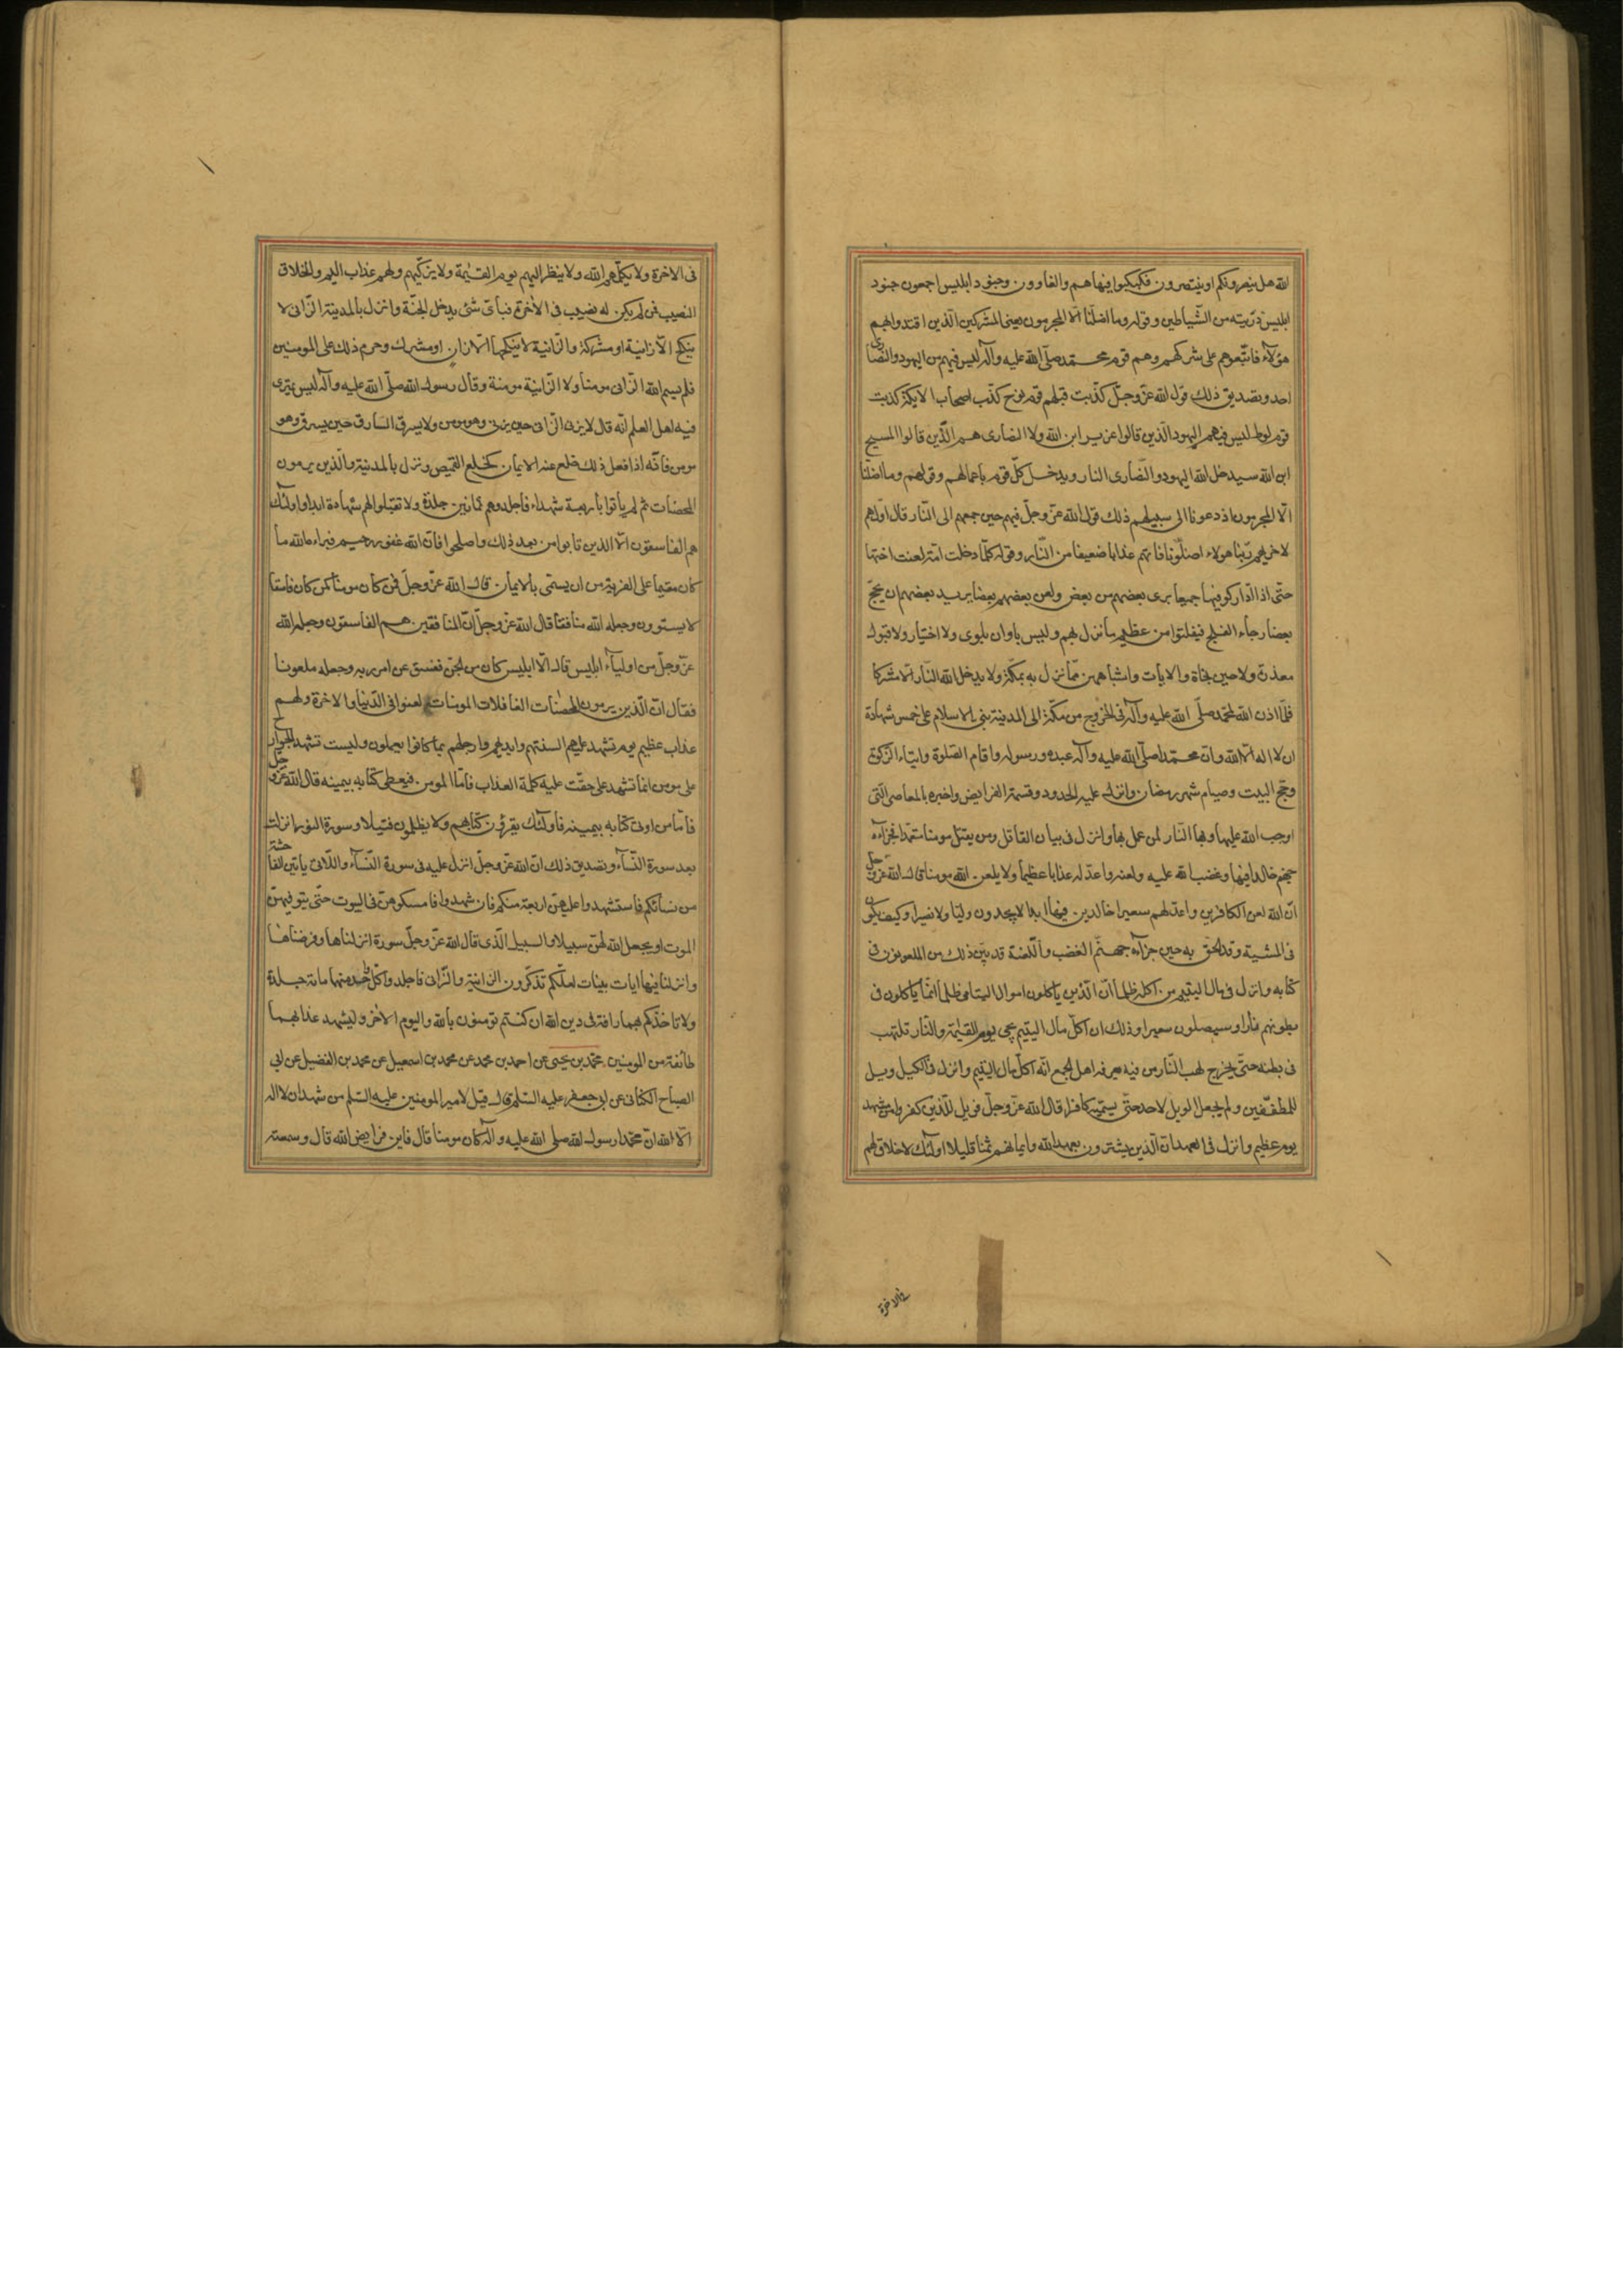 الله هل ينصرونكم او ينتصرون فكبكبوا فيها هم والغاوون وجنود ابليس اجمعون جنود
ابليس ذرّيته من الشّياطين وقوله وما اضلّنا الّا المجرمون يعنى المشركين الّذين اقتدوا بهم
هؤلاء فاتّبعوهم على شركهم وهم قوم محمّد صلّى الله عليه وآله ليس فيهم من اليهود والنّصارى
احد وتصديق ذلك قول الله عزّ وجلّ كذّبت قبلهم قوم نوح كذّب اصحاب الايكة كذبت
قوم لوط ليس فيهم اليهود الّذين قالوا عزير ابن الله ولا النصارى هم الّذين قالوا المسيح
ابن الله سيدخل الله اليهود والنّصارى النار ويدخل كلّ قوم باعمالهم وقولهم وما اضلّنا
الّا المجرمون اذ دعونا الى سبيلهم ذلك قول الله عزّ وجلّ فيهم حين جمعهم الى النّار قال اولهم
لاخريهم ربّنا هولاء اضلّونا فاتهم عذابا ضعيفا من النّار وقوله كلّما دخلت امّة لعنت اختها
حتّى اذا ادّاركوا فيها جميعا برى بعضهم من بعض ولعن بعضهم بعضا يريد بعضهم ان يحجّ
بعضا رجاء الفلج فيفلتوا من عظيم ما نزل بهم وليس باوان بلوى ولا اختبار ولا قبول
معذرة ولا حين نجاة والايات واشباههن ممّا نزل به بمكّة ولا يدخل الله النّار الّا مشركا
فلمّا اذن الله لمحمّد صلّى الله عليه وآله فى الخروج من مكّة الى المدينة بنى الاسلام على خمس شهادة
ان لا اله الّا الله وانّ محمّدا صلّى الله عليه وآله عبده ورسوله واقام الصّلوة وايتاء الزّكوة
وحجّ البيت وصيام شهر رمضان وانزل عليه الحدود وقسمة الفرايض واخبره بالمعاصى الّتى
اوجب الله عليها وبها النّار لمن عمل بها وانزل فى بيان القاتل ومن يقتل مومنا متعمّدا فجزآءه
جهنّم خالدا فيها وغضب الله عليه ولعنه واعدّ له عذابا عظيما ولا يلعن الله مومنا قال الله عزّ وجلّ
انّ الله لعن الكافرين واعدّ لهم سعيرا خالدين فيها ابدا لا يجدون وليّا ولا نصيرا وكيف يكون
فى المشيّة وقد الحق به حين جزآءه جهنّم الغضب واللّعنة قد بيّن ذلك من الملعونون فى
كتابه وانزل فى مال اليتيم من اكله ظلما انّ الّذين ياكلون اموال اليتامى ظلما انّما ياكلون فى
بطونهم نارا وسيصلون سعيرا وذلك ان اكل مال اليتيم يجى يوم القيٰمة والنّار تلتهب
فى بطنه حتّى يخرج لهب النّار من فيه يعرفه اهل الجمع انّه اكل مال اليتيم وانزل فى الكيل ويل
للمطفّفين ولم يجعل الويل لاحد حتّى يسمّيه كافرا قال الله عزّ وجلّ فويل للّذين كفروا من مشهد
يوم عظيم وانزل فى العهد انّ الّذين يشترون بعهد الله وايمانهم ثمنا قليلا اولئك لا خلاق لهم
فى الاخرة
فى الاخرة ولا يكلّمهم الله ولا ينظر اليهم يوم القيٰمة ولا يزكّيهم ولهم عذاب اليم والخلاق
النصيب فمن لم يكن له نصيب فى الآخرة فبأىّ شئ يدخل الجنّة وانزل بالمدينة الزّانى لا
ينكح الّا زانية او مشركة والزّانية لا ينكحها الّا زان او مشرك وحرم ذلك على المومنين
فلم يسم الله الزّانى مومنا ولا الزّانية مومنة وقال رسول الله صلّى الله عليه وآله ليس يمترى
فيه اهل العلم انّه قال لا يزنى الزّانى حين يزنى وهو مومن ولا يسرق السّارق حين يسرق وهو
مومن فانّه اذا فعل ذلك خلع عنه الايمان كخلع القميص ونزل بالمدينة والّذين يرمون
المحصنات ثم لم يأتوا بأربعة شهداء فاجلدوهم ثمانين جلدة ولا تقبلوا لهم شهادة ابدا واولئك
هم الفاسقون الّا الذين تابوا من بعد ذلك واصلحوا فانّ الله غفور رحيم فبراءه الله ما
كان مقيما على الفرية من ان يسمّى بالايمان قال الله عزّ وجلّ افمن كان مومنا كمن كان فاسقا
لا يستوون وجعله الله منافقا قال الله عزّ وجلّ انّ المنافقين هم الفاسقون وجعله الله
عزّ وجلّ من اولياء ابليس قال الّا ابليس كان من الجنّ ففسق عن امر ربه وجعله ملعونا
فقال انّ الّذين يرمون المحصنات الغافلات المومنات لعنوا فى الدّنيا والاخرة ولهم
عذاب عظيم يوم تشهد عليهم السنتهم وايديهم وارجلهم بما كانوا يعملون وليست تشهد الجوارح
على مومن انّما تشهد على من حقّت عليه كلمة العذاب فامّا المومن فيعطى كتابه بيمينه قال الله عزّ وجلّ
فامّا من اوتى كتابه بيمينه فاولئك يقرؤن كتابهم ولا يظلمون فتيلا وسورة النور انزلت
بعد سورة النّساء وتصديق ذلك انّ الله عزّ وجلّ انزل عليه فى سورة النّساء واللّاتى يأتين الفاحشة
من نسائكم فاستشهدوا عليهنّ اربعة منكم فان شهدوا فامسكوهنّ فى البيوت حتّى يتوفيهنّ
الموت او يجعل الله لهنّ سبيلا والسبيل الّذى قال الله عزّ وجلّ سورة انزلناها وفرضناها
وانزلنا فيها ايات بينات لعلّكم تذكّرون الزانية والزّانى فاجلدوا كلّ واحد منهما مائة جلدة
ولا تاخذكم بهما رافة فى دين الله ان كنتم تومنون بالله واليوم الاخر وليشهد عذابهما
طائفة من المومنين محمّد بن يحيى عن احمد بن محمد عن محمد بن اسمعيل عن محمد بن الفضيل عن ابى
الصباح الكنانى عن ابى جعفر عليه السّلم قال قيل لامير المومنين عليه السّلم من شهد ان لا اله
الّا الله وانّ محمّدا رسول الله صلى الله عليه وآله كان مومنا قال فاين فرايض الله قال وسمعته